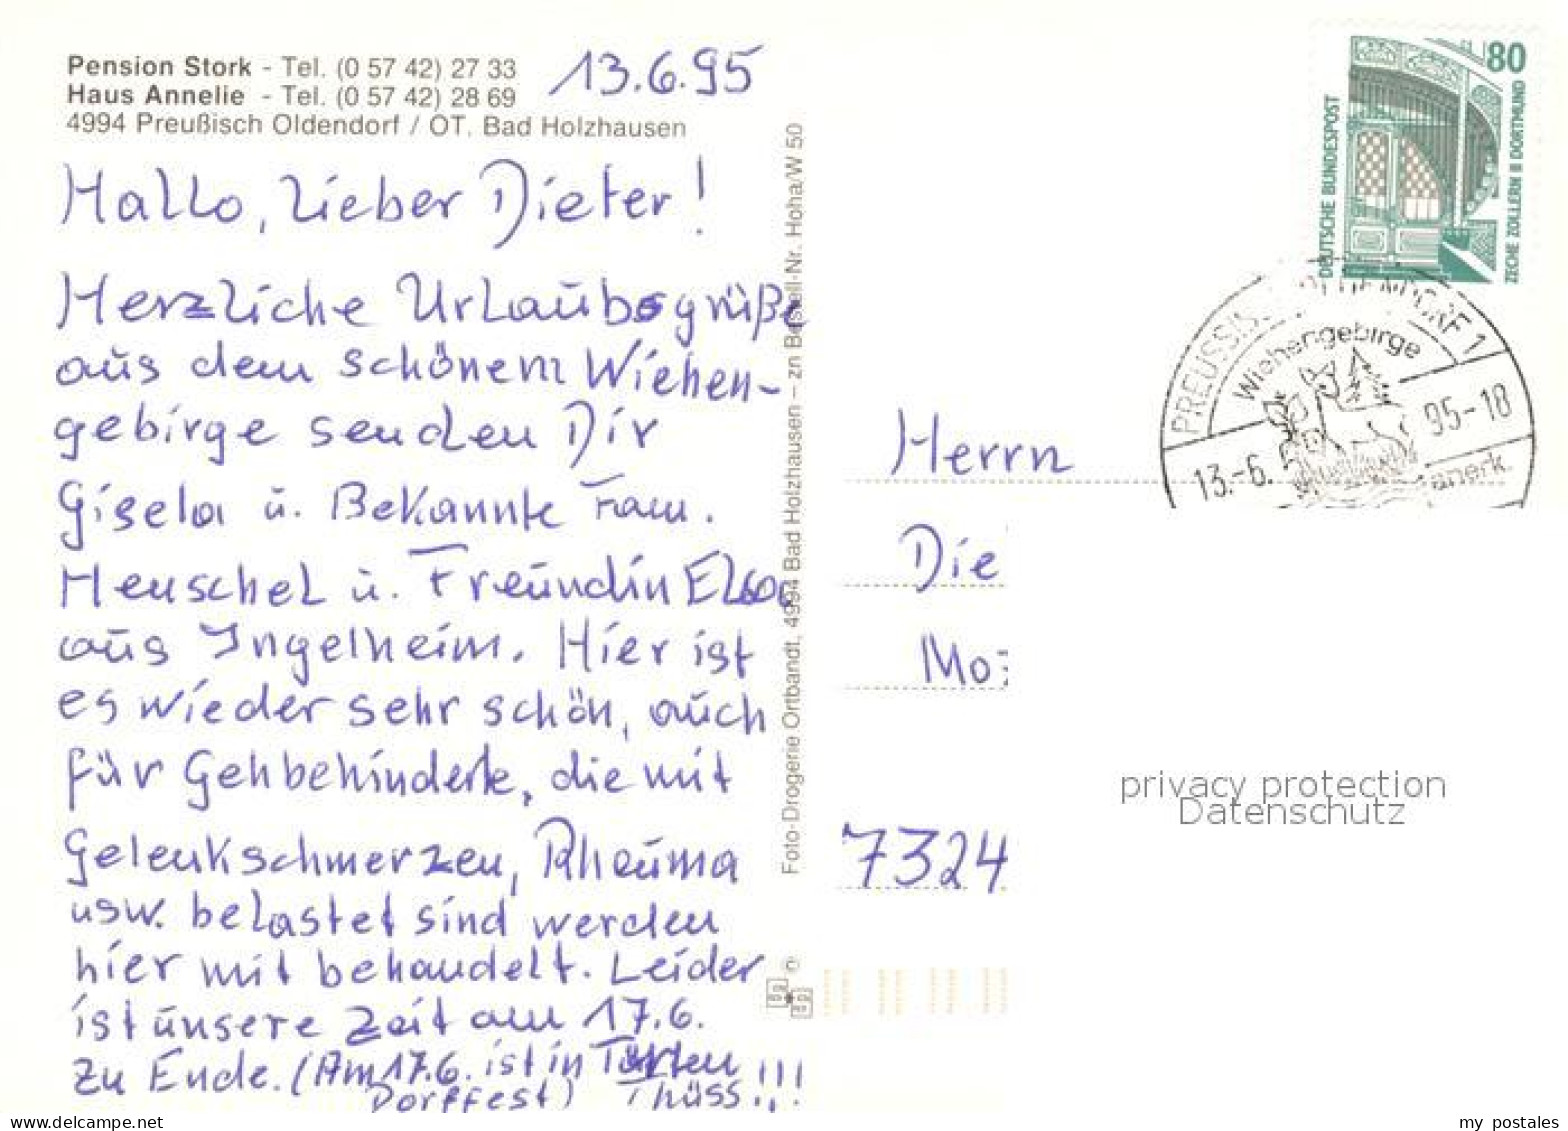 Pension Stork - Tel. (0 57 42) 27 33
Haus Annelie - Tel. (0 57 42) 28 69
4994 Preußisch Oldendorf / OT. Bad Holzhausen
13.6.95
Hallo, lieber Dieter!
Herzliche Urlaubsgrüße
aus dem schönem Wiehen-
gebirge senden Dir
Gisela u. Bekannte Fam.
Henschel u. Freundin
aus Ingelheim. Hier ist
es wieder sehr schön, auch
für Gehbehinderte, die mit
Gelenkschmerzen, Rheuma
usw. belastet sind werden
hier mit behandelt. Leider
ist unsere Zeit am 17.6.
zu Ende. (Am 17.6. ist in
Dorffest) Thüss!!!
Foto-Drogerie Ortbandt, 4994 Bad Holzhausen – zn Bestell-Nr. Hoha/W 50
©
80
DEUTSCHE BUNDESPOST
ZECHE ZOLLERN II DORTMUND
PREUSSISCH OLDENDORF 1
Wiehengebirge
13.-6. 95-18
anerk.
Herrn
Die
Mo
7324
privacy protection
Datenschutz
www.delcampe.net
my_postales